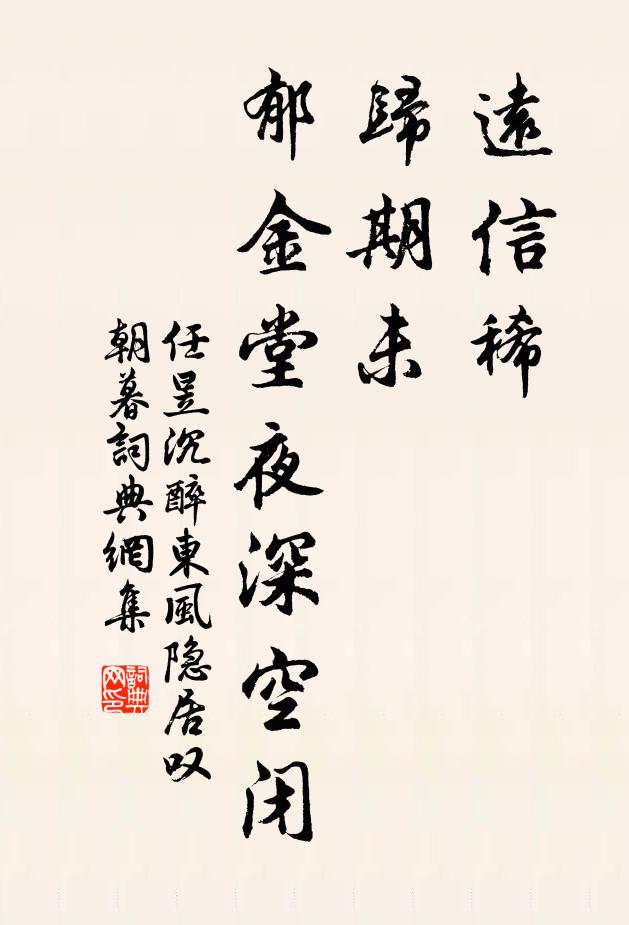 遠信稀
歸期未
郁金堂夜深空闭
任昱沉醉東風隐居叹
朝暮詞典網集
詞典网印